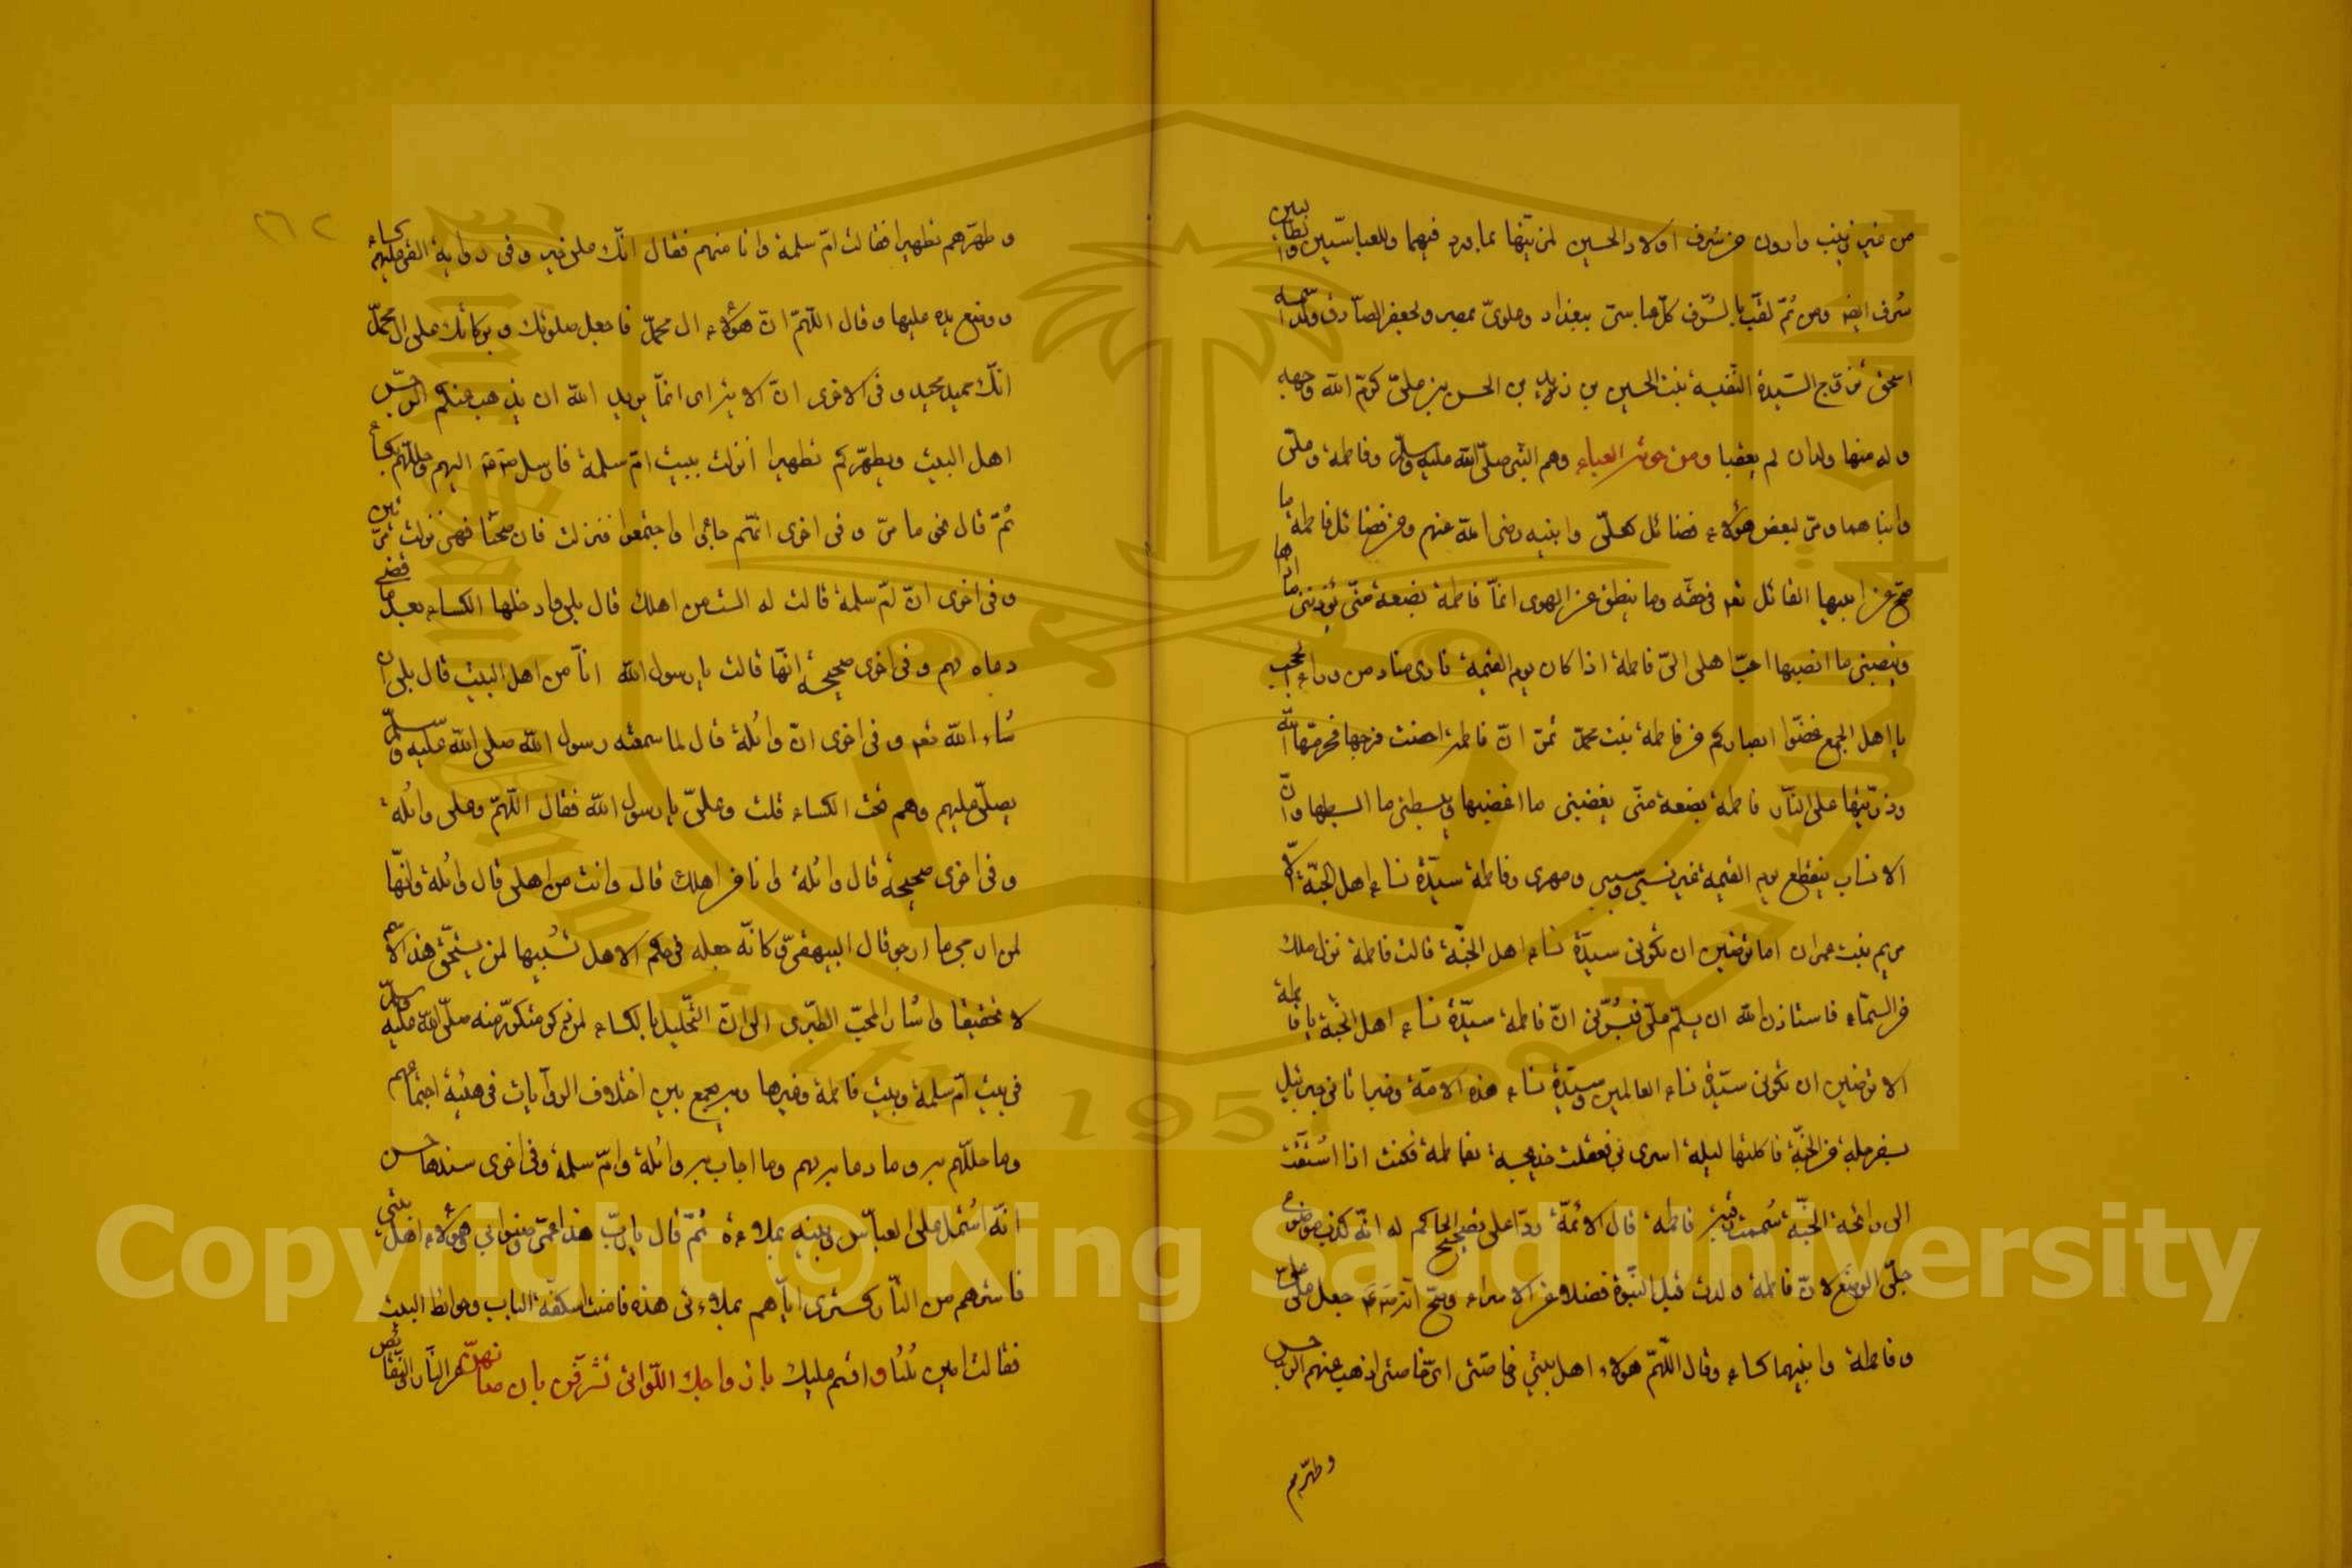 من غير زينب وادون من شرف اولاد الحسين لمزيتها بما ورد فيهما وللعباسيين والطالبيين
شرف ايضا ومن ثم لقب بالشرف كل عباسى ببغداد وعلوى بمصر ولجعفر الصادق ولد اسمه
اسحق تزوج السيدة النفيسة بنت الحسين بن زيد بن الحسن بن على كرم الله وجهه
وله منها ولدان لم يعقبا ومن خمس العباء وهم النبى صلى الله عليه وسلم وفاطمة وعلى
وابناهما ومر لبعض هؤلاء فضائل كعلى وابنيه رضى الله عنهم ومن فضائل فاطمة ما
صح عن ابيها القائل تعم فى حقه وما ينطق عن الهوى انما فاطمة بضعة منى يؤذينى ما اذاها
وينصبنى ما انصبها احب اهلى الى فاطمة اذا كان يوم القيمة نادى مناد من وراء الحجب
يا اهل الجمع غضوا ابصاركم عن فاطمة بنت محمد حتى تمر ان فاطمة احصنت فرجها فحرمها الله
وذريتها على النار فاطمة بضعة منى يغضبنى ما اغضبها ويبسطنى ما ابسطها وان
الانساب ينقطع يوم القيمة غير نسبى وسببى وصهرى وفاطمة سيدة نساء اهل الجنة الا
مريم بنت عمران اما ترضين ان تكونى سيدة نساء اهل الجنة قالت فاطمة نزل ملك
من السماء فاستاذن الله ان يسلم على فبشرنى ان فاطمة سيدة نساء اهل الجنة يا فاطمة
الا ترضين ان تكونى سيدة نساء العالمين وسيدة نساء هذه الامة وخبر اتانى جبرئيل
بسفرجلة من الجنة فاكلتها ليلة اسرى بى فعلقت خديجة بفاطمة فكنت اذا اشتقت
الى رائحة الجنة شممت رقبة فاطمة قال الائمة ردا على تصحيح الحاكم له انه كذب موضوع
جلى الوضع لان فاطمة ولدت قبل النبوة فضلا عن الاسراء وصح انه جعل على على
وفاطمة وابنيهما كساء وقال اللهم هؤلاء اهل بيتى خاصتى اذهب عنهم الرجس
وطهرهم
٢٦٢
وطهرهم تطهيرا فقالت ام سلمة وانا منهم فقال انك على خير وفى رواية القى عليهم كساء
ووضع يده عليها وقال اللهم ان هؤلاء ال محمد فاجعل صلوتك وبركاتك على ال محمد
انك حميد مجيد وفى الاخرى ان الاية اى انما يريد الله ان يذهب عنكم الرجس
اهل البيت ويطهركم تطهيرا انزلت ببيت ام سلمة فارسل اليهم وجللهم بكساء
ثم قال نحو ما مر وفى اخرى انهم جاؤا واجتمعوا فنزلت فان صحتا فهى نزلت مرتين
وفى اخرى ان ام سلمة قالت له الست من اهلك قال بلى وادخلها الكساء بعد ما قضى
دعاه لهم وفى اخرى صحيحة انها قالت يا رسول الله انا من اهل البيت قال بلى ان
شاء الله تعم وفى اخرى ان واثلة قال لما سمعته رسول الله صلى الله عليه وسلم
يصلى عليهم وهم تحت الكساء قلت وعلى يا رسول الله فقال اللهم وعلى واثلة
وفى اخرى صحيحة قال واثلة وانا من اهلك قال وانت من اهلى قال واثلة وانها
لمن ارجى ما ارجو قال البيهقى وكانه جعله فى حكم الاهل تشبيها لمن يستحق هذا الاسم
لا تحقيقا واشار المحب الطبرى الى ان التجليل بالكساء لمن ذكر متكرر منه صلى الله عليه وسلم
فى بيت ام سلمة وبيت فاطمة وغيرها وبه يجمع بين اختلاف الروايات فى هيئة اجتماعهم
وما جللهم به وما دعا به لهم وما اجاب به واثلة وام سلمة وفى اخرى سندها حسن
انه اشتمل على العباس وبنيه بملاءة ثم قال يا رب هذا عمى وصنو ابى وهؤلاء اهل بيتى
فاسترهم من النار كسترى اياهم بملاءتى هذه فامنت اسكفة الباب وحوائط البيت
فقالت امين ثلثا واقسم عليك بازواجك اللواتى تشرفن بان صانهن من النار